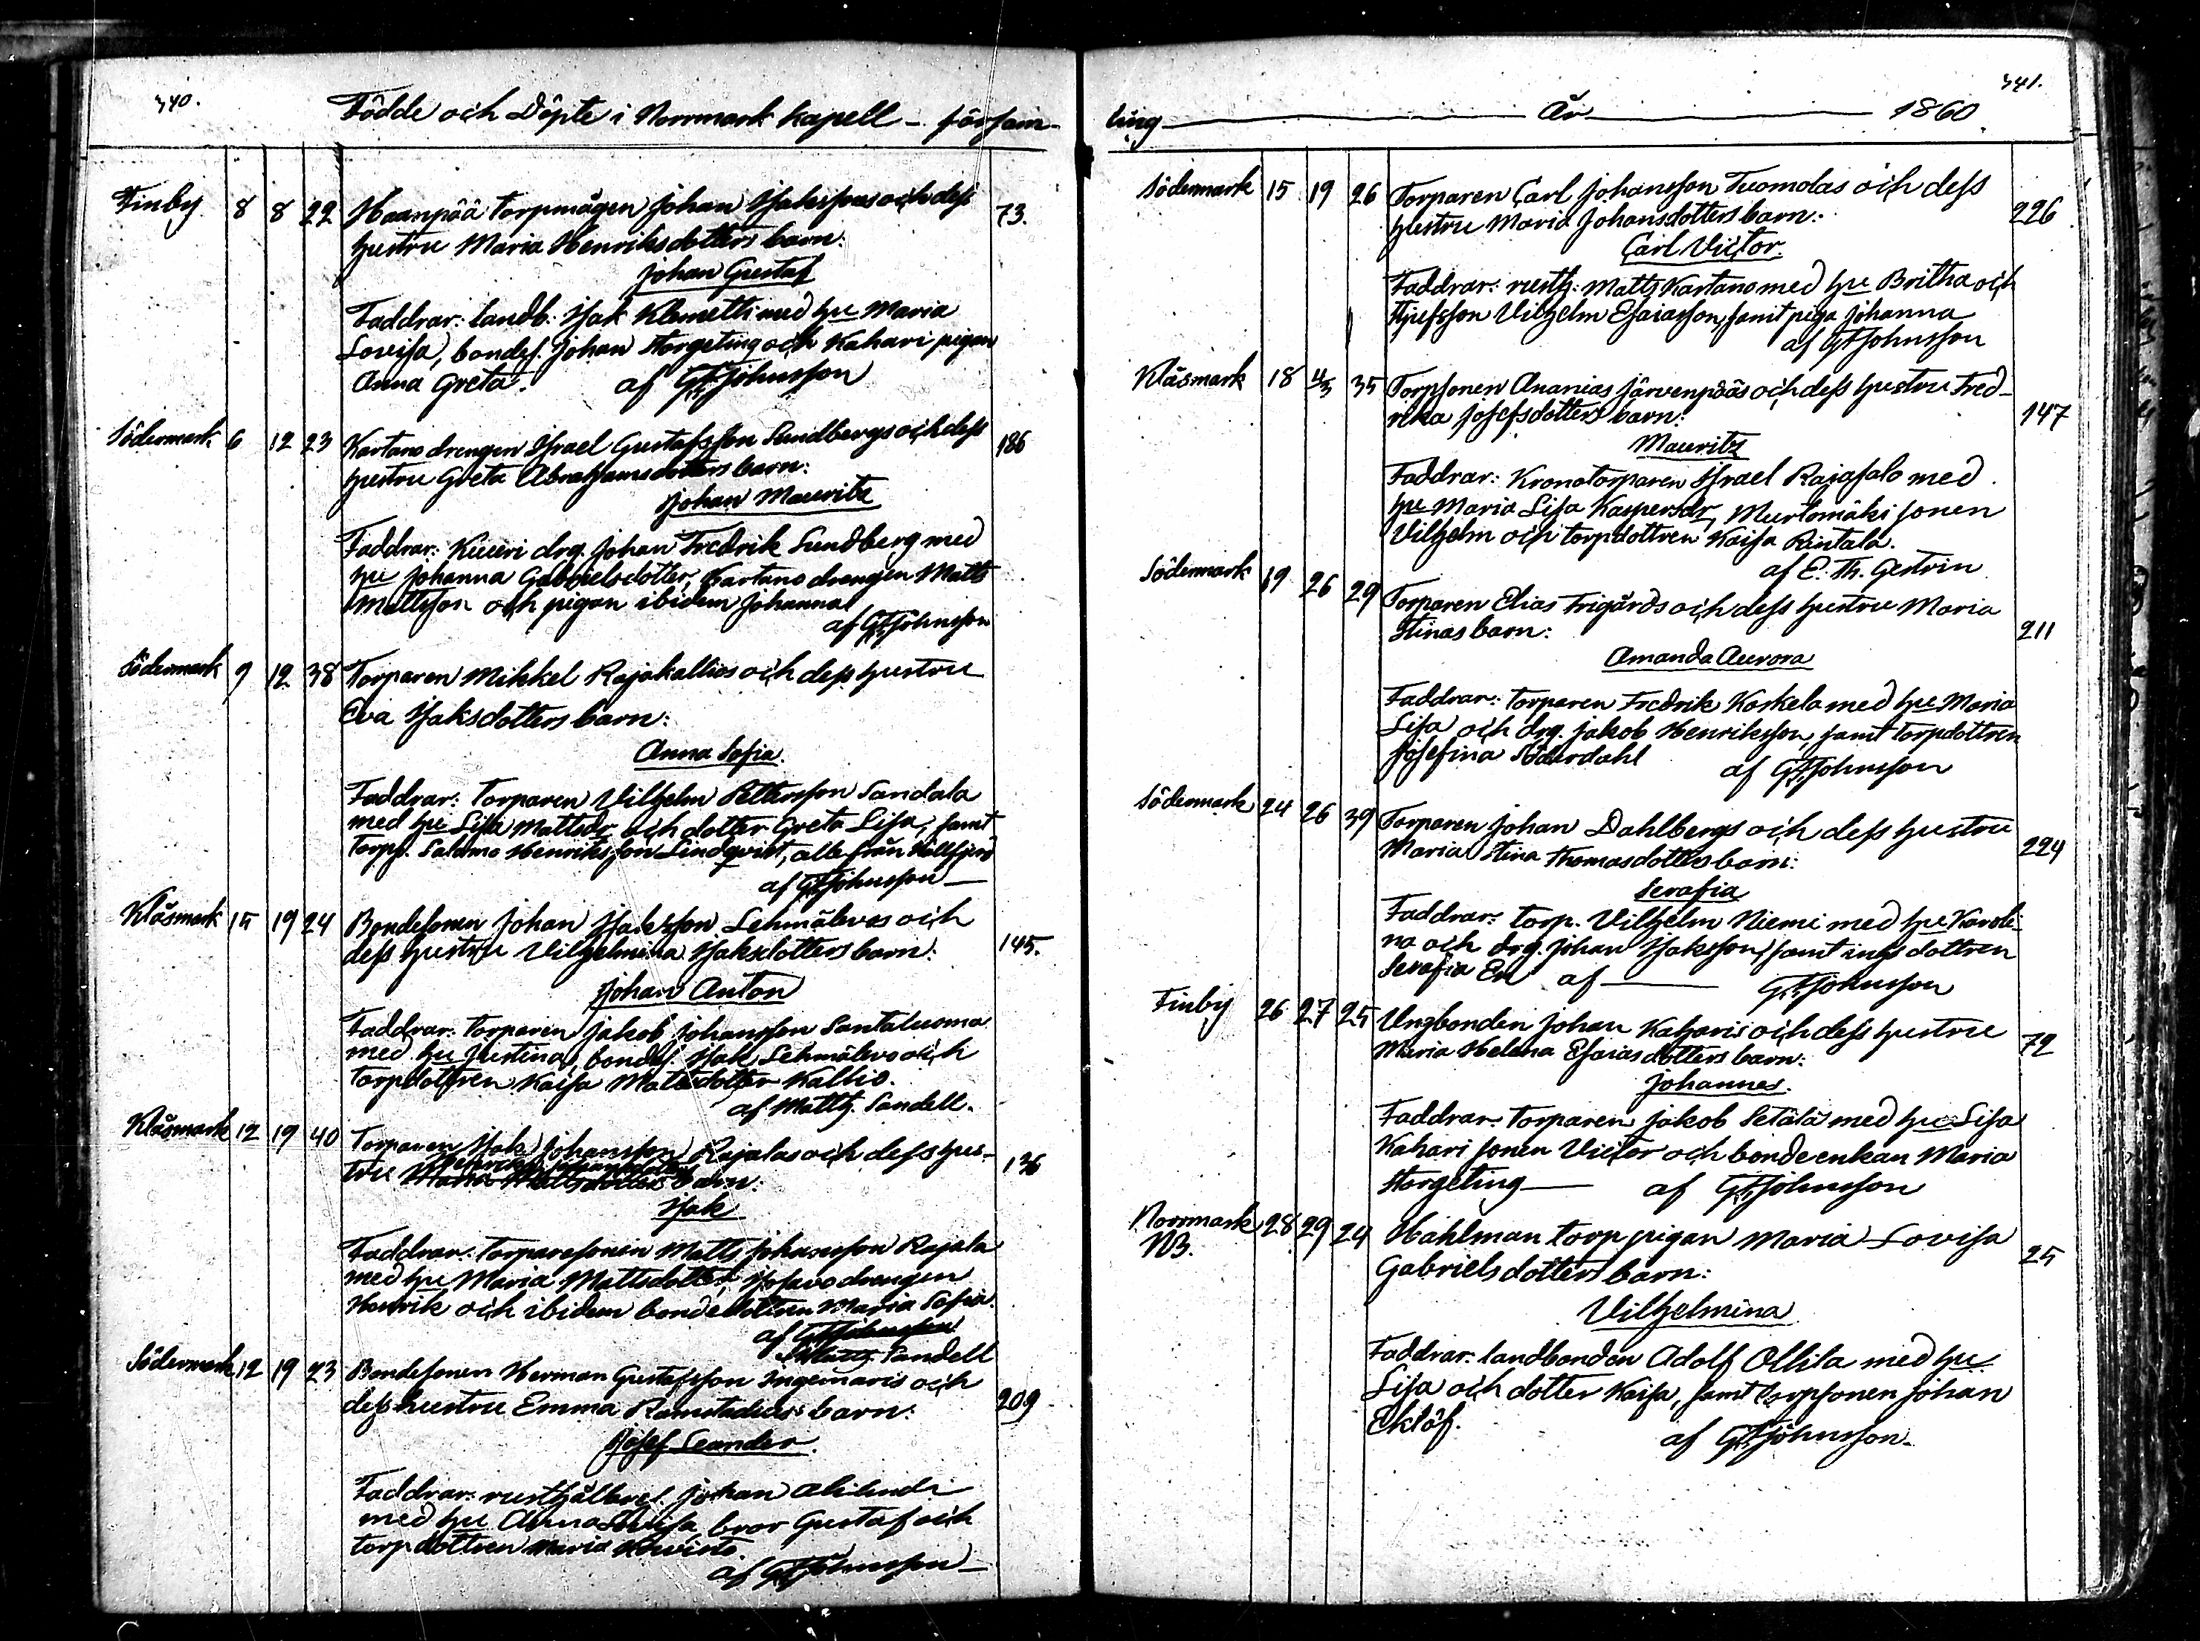 340.
Födde och Döpte i Norrmark kapell - församling
Finby 8 8 22 Haanpää torpmågen Johan Isakssons och dess 73.
hustru Maria Henriksdotters barn:
Johan Gustaf
Faddrar: landb. Isak Klemetti med hu Maria
Lovisa, bondes. Johan Storgeting och Kahari pigan
Anna Greta. af GFJohnsson
Södermark 6 12 23 Kartano drengen Israel Gustafsson Sundbergs och dess 186
hustru Greta Abrahamsdotters barn:
Johan Mauritz
Faddrar: Kuuri drg. Johan Fredrik Sundberg med
hu Johanna Gabrielsdotter, Kartano drengen Matts
Mattsson och pigan ibidem Johanna
af GFJohnsson
Södermark 9 12 38 Torparen Mikkel Rajakallios och dess hustru
Eva Isaksdotters barn:
Anna Sofia.
Faddrar: Torparen Vilhelm Pettersson Sandala
med hu Lisa Mattsdr och dotter Greta Lisa, samt
torps. Salomo Henriksson Lindqvist, alle från
af GFJohnsson
Klåsmark 15 19 24 Bondesonen Johan Isaksson Lehmälevos och
dess hustru Vilhelmina Isaksdotters barn: 145.
Johan Anton
Faddrar: torparen Jakob Johansson Santaluoma
med hu Justina, bondes. Isak Lehmälevo och
torpdottren Kaisa Mattsdotter Kallio.
af Matth. Sandell.
Klåsmark 12 19 40 Torparen Isak Johansson Rajalas och dess hus-
tru Henrika Johansdotters barn: 136
Isak
Faddrar: torparesonen Matts Johansson Rajala
med hu Maria Mattsdotter, drengen
Henrik och ibidem bondedottren Maria Sofia.
af GFJohnsson
Matth. Sandell
Södermark 12 19 23 Bondesonen Herman Gustafsson Ingemaris och
dess hustru Emma Ramstadius barn: 209
Josef Leander.
Faddrar: rusthållares. Johan
med hu Anna Lovisa, bror Gustaf och
torpdottren Maria Koivisto.
af GFJohnsson
341.
År 1860
Södermark 15 19 26 Torparen Carl Johansson Tuomolas och dess
hustru Maria Johansdotters barn: 226
Carl Victor.
Faddrar: rusth. Matts Kartano med hu Britha och
Vilhelm Esaiasson, samt piga Johanna
af GFJohnsson
Klåsmark 18 4/3 35 Torpsonen Ananias Järvenpääs och dess hustru Fred-
rika Josefsdotters barn: 147
Mauritz
Faddrar: Kronotorparen Israel Rajasalo med
hu Maria Lisa Kaspersdr, Murtomäki sonen
Vilhelm och torpdottren Kaisa Rintala.
af E. Th. Gestrin
Södermark 19 26 29 Torparen Elias Frigårds och dess hustru Maria
Stinas barn: 211
Amanda Aurora
Faddrar: torparen Fredrik Koskela med hu Maria
Lisa och drg. Jakob Henriksson, samt torpdottren
Josefina Söderdahl af GFJohnsson
Södermark 24 26 39 Torparen Johan Dahlbergs och dess hustru
Maria Stina Thomasdotters barn: 224
Serafia
Faddrar: torp. Vilhelm Niemi med hu Karoli-
na och drg. Johan Isaksson, samt inhs dottren
Serafia En af GFJohnsson
Finby 26 27 25 Ungbonden Johan Kaharis och dess hustru
Maria Helena Esaiasdotters barn: 72
Johannes.
Faddrar: torparen Jakob Setälä med hu Lisa
Kahari sonen Victor och bondeenkan Maria
Storgeting af GFJohnsson
Norrmark 28 29 24 Hahlman torp pigan Maria Lovisa
NB. Gabrielsdotters barn: 25
Vilhelmina
Faddrar: landbonden Adolf Ollila med hu
Lisa och dotter Kaisa, samt torpsonen Johan
Eklöf. af GFJohnsson.